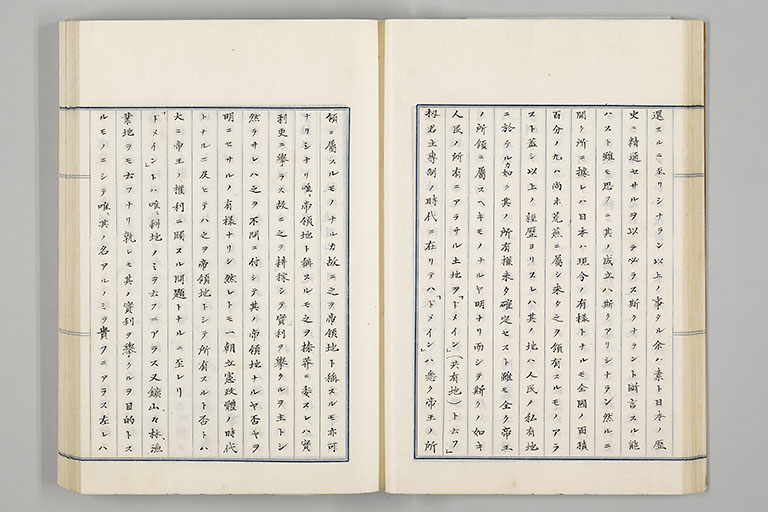 還スルニ至リシナラン以上ノ事タル余ハ素ト日本ノ歷
史ニ精通セサルヲ以テ必ラス斯クナラント斷言スル能
ハスト雖モ思フニ其ノ成立ハ斯クアリシナラン然ルニ
聞ク所ニ據レハ日本ハ現今ノ有樣トナルモ全國ノ面積
百分ノ九ハ尚ホ荒蕪ニ屬シ未タ之ヲ領有スルモノアラ
スト蓋シ以上ノ經歷ヨリスレハ其ノ地ハ人民ノ私有地
ニ於ケルカ如ク其ノ所有權未タ確定セスト雖モ全ク帝王
ノ所領ニ屬スヘキモノナルヤ明ナリ而シテ斯クノ如キ
人民ノ所有ニアラサル土地ヲ「ドメイン」(共有地)ト云フ」
扨君主專制ノ時代ニ在リテハ「ドメイン」ハ悉ク帝王ノ所
領ニ屬スルモノナルカ故ニ之ヲ帝領地ト稱スルモ亦可
ナリシナリ唯帝領地ト稱スルモ之ヲ榛莽ニ委スレハ實
利更ニ擧ラス故ニ之ヲ耕稼シテ實利ヲ擧クルヲ主トシ
然ラサレハ之ヲ不問ニ付シテ其ノ帝領地ナルヤ否ヤヲ
明ニセサルノ有樣ナリシ然レトモ一朝立憲政體ノ時代
トナルニ及ヒテハ之ヲ帝領地トシテ所有スルト否トハ
大ニ帝王ノ權利ニ關スル問題トナルニ至レリ
「ドメイン」トハ唯斜地ノミヲ云フニアラス又鑛山々林漁
業地ヲモ云フナリ孰レモ其ノ實利ヲ擧クルヲ目的トス
ルモノニシテ唯其ノ名アルノミヲ貴フニアラス左レハ